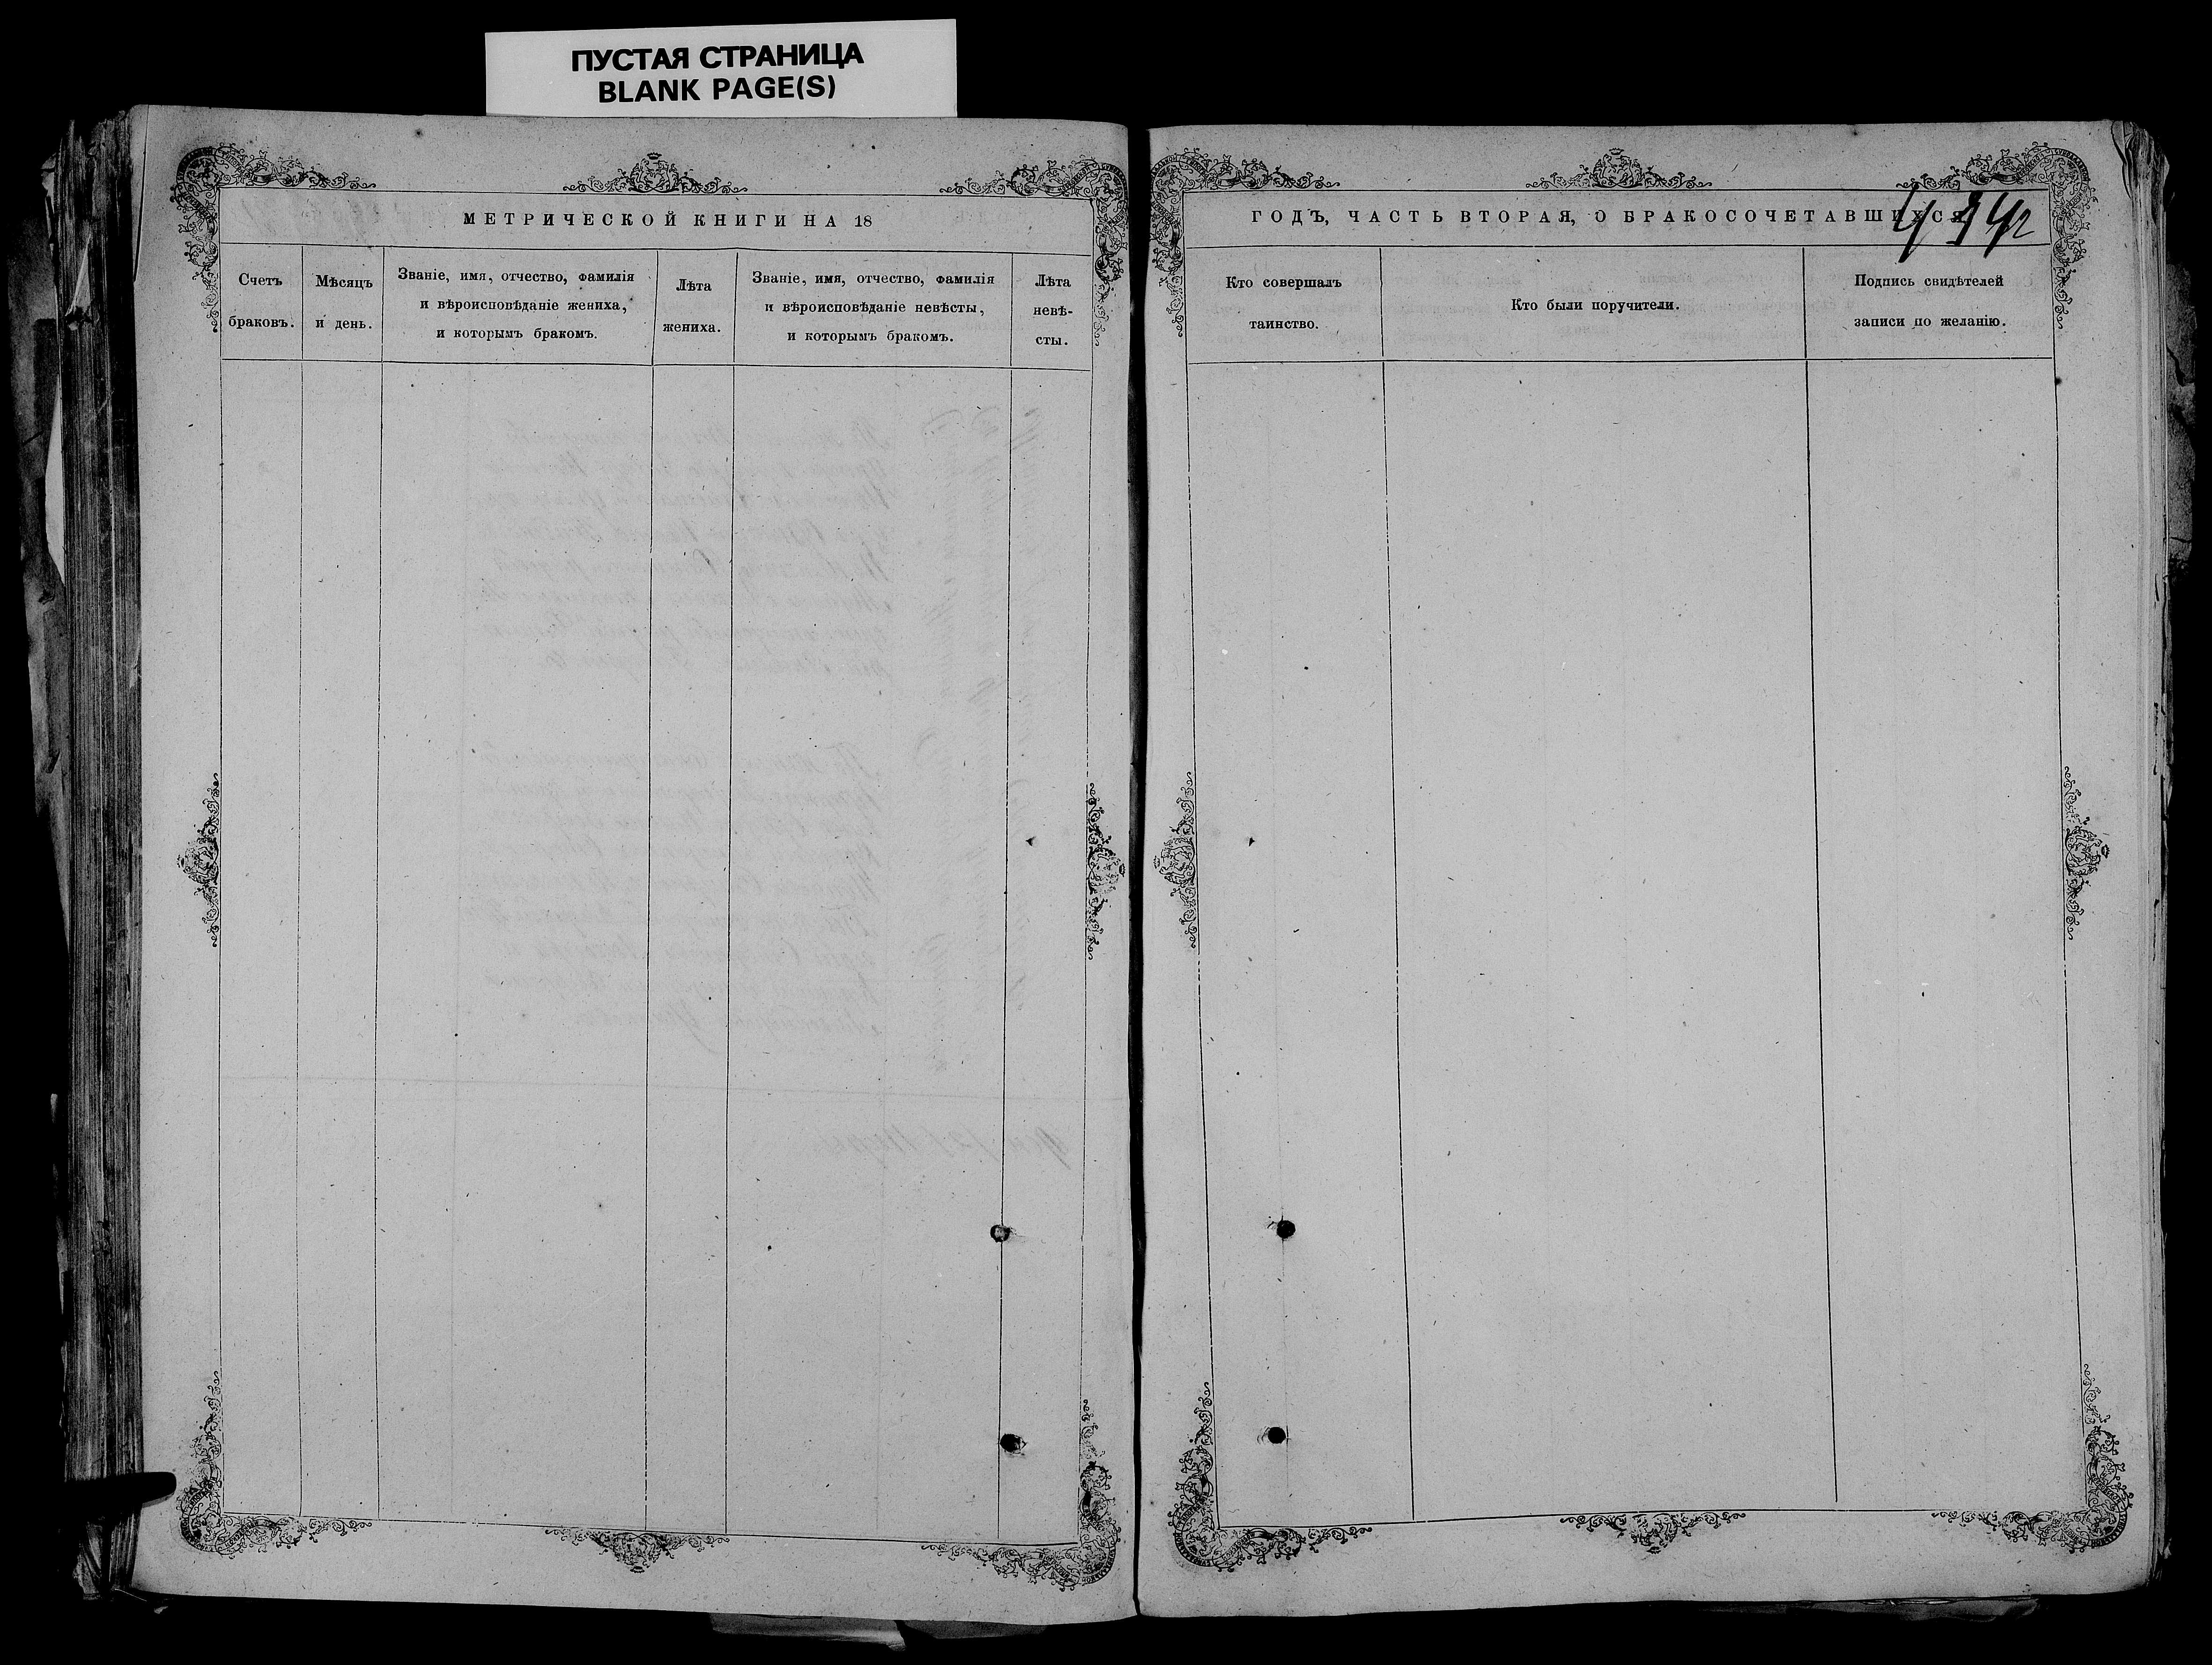 ПУСТАЯ СТРАНИЦА
BLANK PAGE(S)
МЕТРИЧЕСКОЙ КНИГИ НА 18
Счетъ браковъ.
Мѣсяцъ и день.
Званіе, имя, отчество, фамилія
и вѣроисповѣданіе жениха,
и которымъ бракомъ.
Лѣта
жениха.
Званіе, имя, отчество, фамилія
и вѣроисповѣданіе невѣсты,
и которымъ бракомъ.
Лѣта
невѣ-
сты.
ГОДЪ, ЧАСТЬ ВТОРАЯ, О БРАКОСОЧЕТАВШИХСЯ
Кто совершалъ
таинство.
Кто были поручители.
Подпись свидѣтелей
записи по желанію.